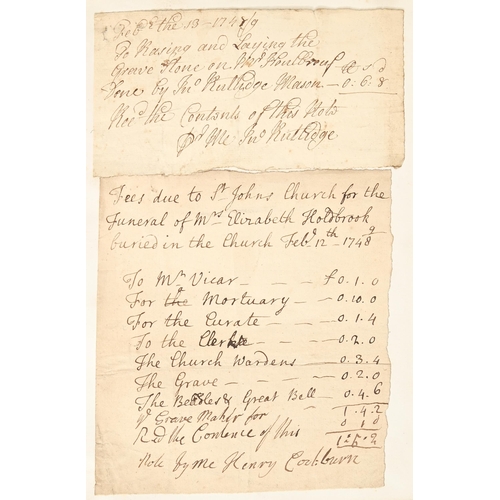 Feb^r the 13 - 1748/9
To Rasing and Laying the
Grave Stone on M^rs Houlbrouk £ s d
Done by Jn^o Rutlidge Mason — 0 : 6 : 8
Rec^d the Contents of this Note
P^r Me Jn^o Rutlidge
Fees due to S^t Johns Church for the
Funeral of M^rs Elizabeth Holdbrook
buried in the Church Feb^y 12^th - 1748/9
To M^r Vicar — — — £0 . 1 . 0
For the Mortuary — — 0 . 10 . 0
For the Curate — — — 0 . 1 . 4
To the Clerk — — — 0 . 2 . 0
The Church Wardens — — 0 . 3 . 4
The Grave — — — — 0 . 2 . 0
The Beadles & Great Bell — 0 . 4 . 6
1 . 4 . 2
y^e Grave Maker for 0 1 0
R^d the Contence of this 1 : 5 : 2
Note by me Henry Cockburn